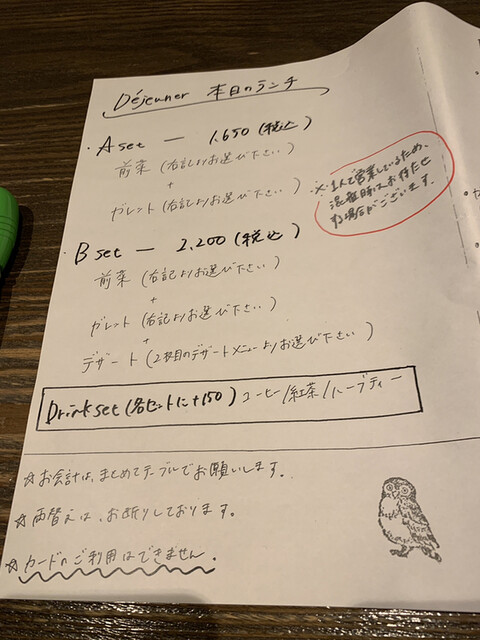 Déjeuner 本日のランチ
・A set — 1,650 (税込)
前菜 (右記よりお選び下さい)
+
ガレット (右記よりお選び下さい)
※ 1人で営業しているため、
混雑時はお待たせ
する場合がございます。
・B set — 2,200 (税込)
前菜 (右記よりお選び下さい)
+
ガレット (右記よりお選び下さい)
+
デザート (2枚目のデザートメニューよりお選び下さい)
Drink set (各セットに+150) コーヒー/紅茶/ハーブティー
☆お会計は、まとめてテーブルでお願いします。
☆両替えは、お断りしております。
☆カードのご利用はできません。